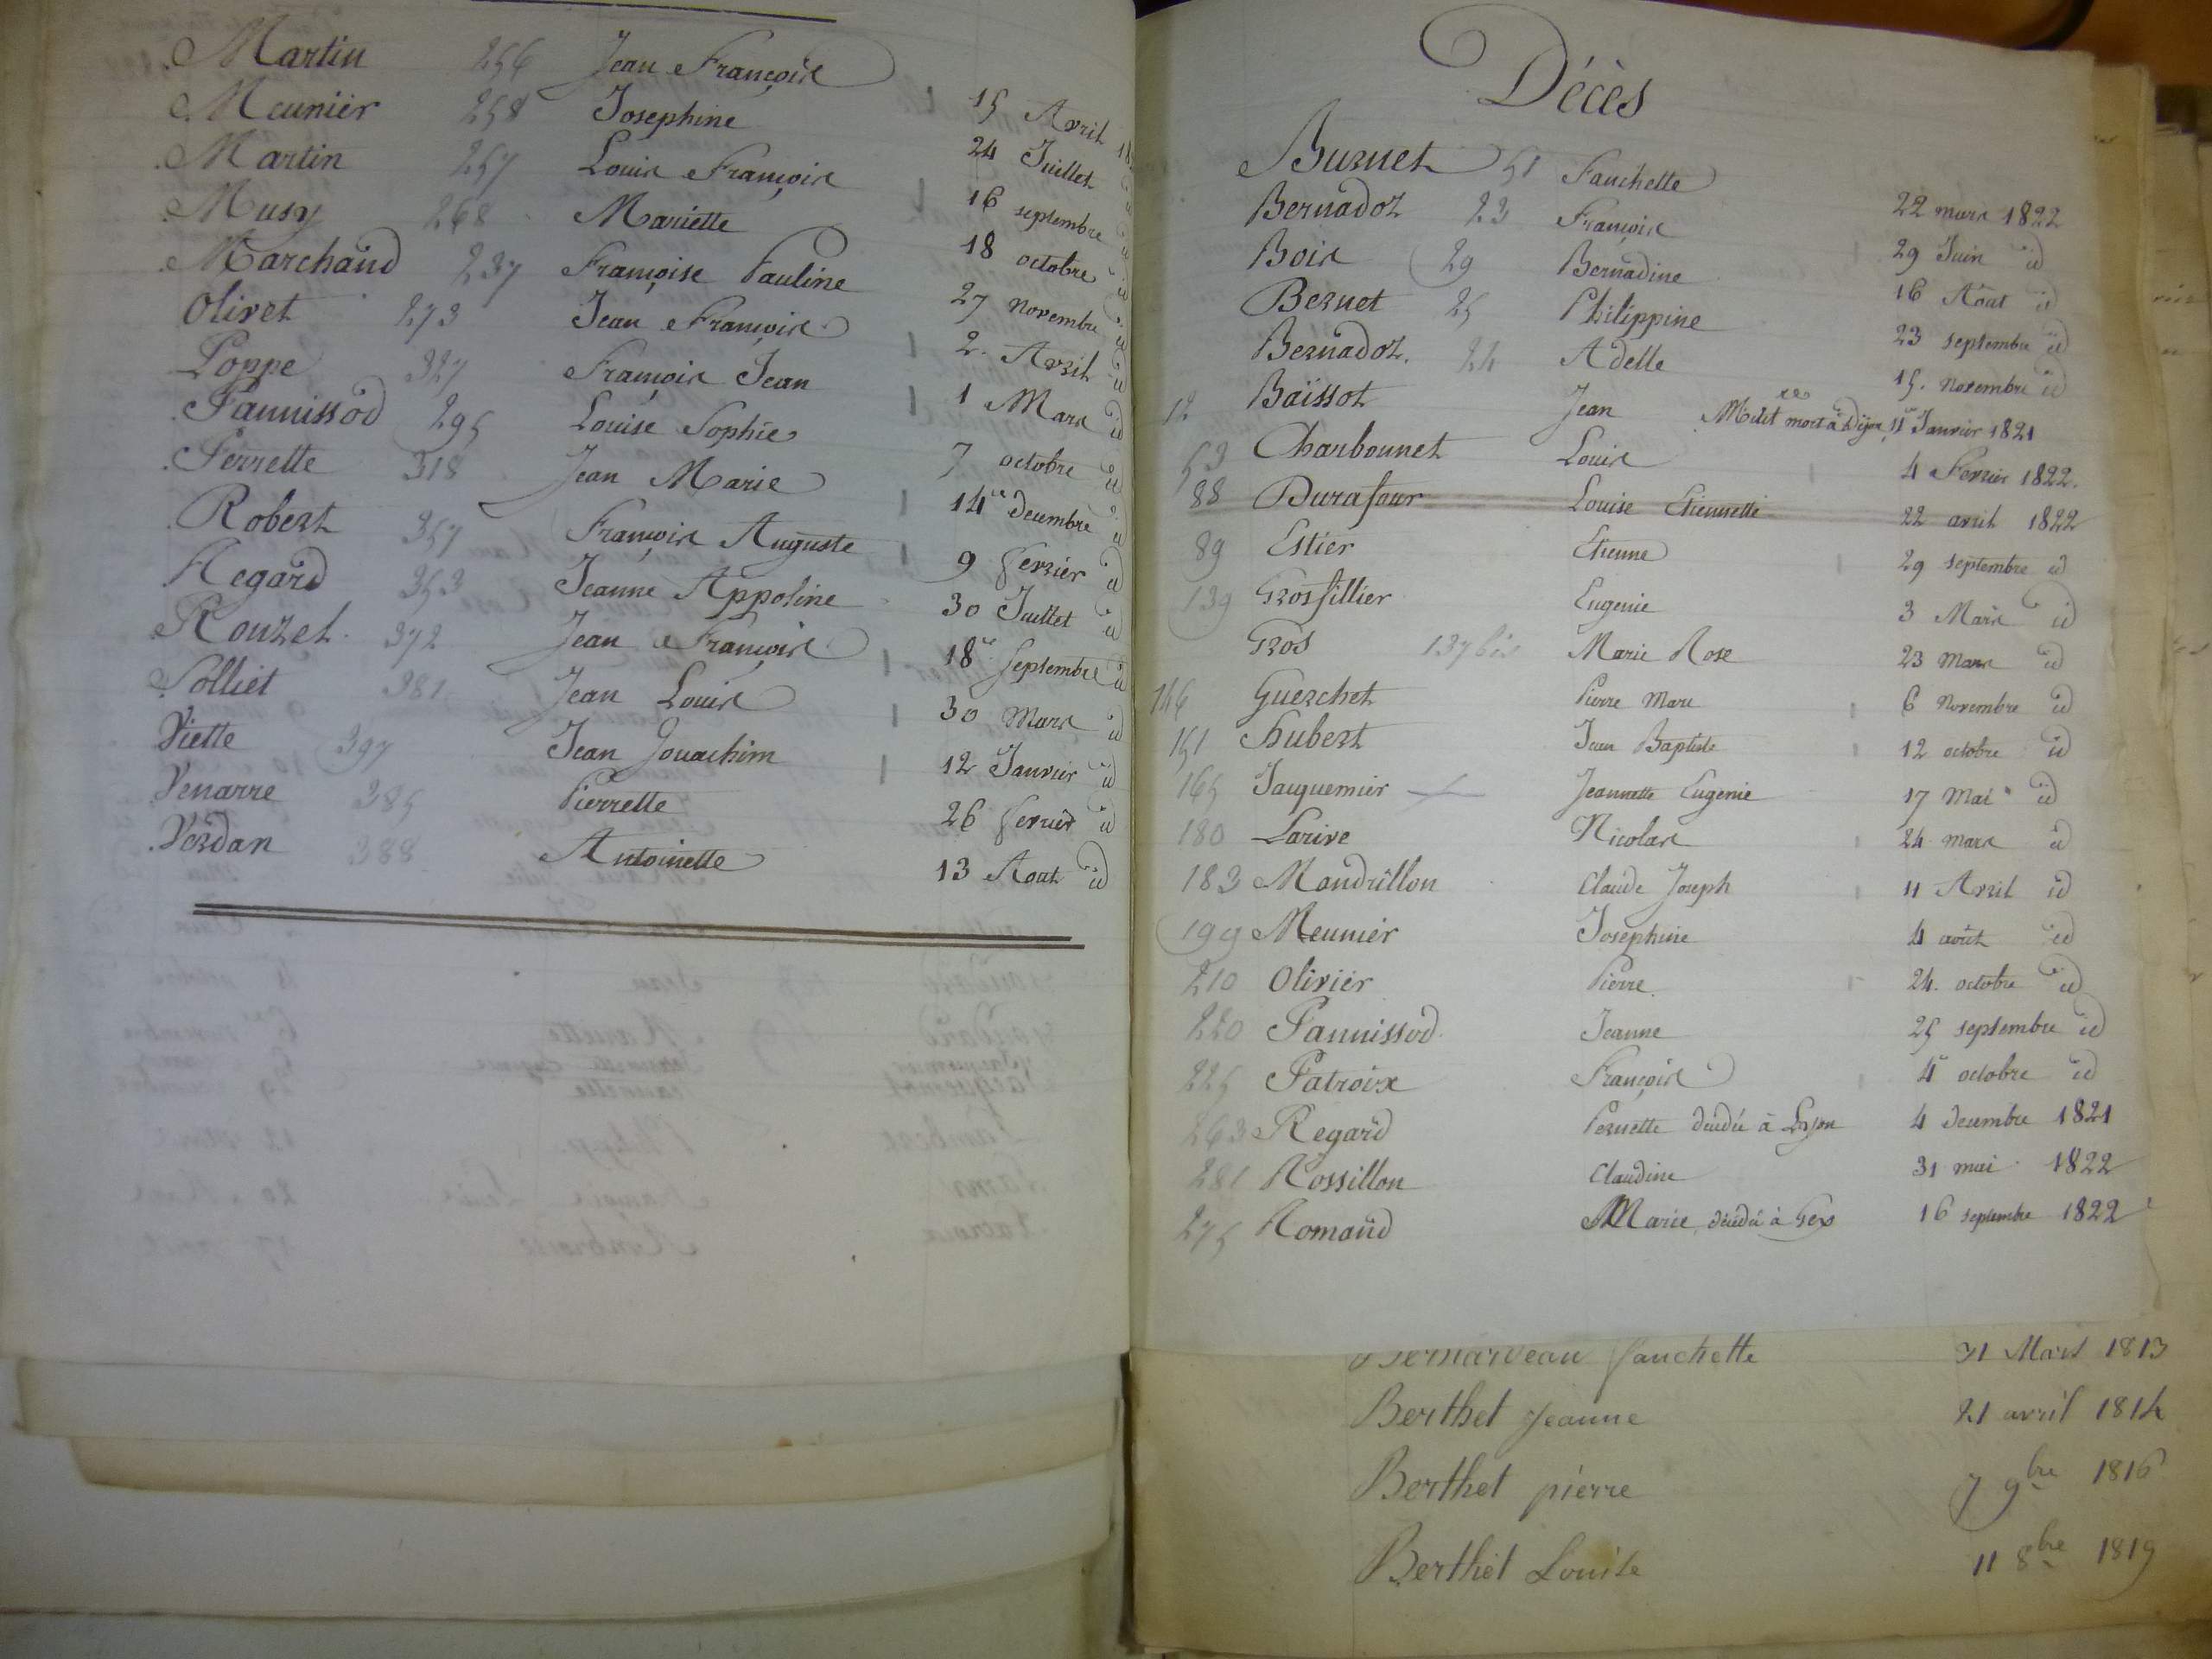 Martin 256 Jean François 15 Avril 18
Meunier 258 Josephine 24 Juillet
Martin 257 Louis François 16 septembre
Musy 268 Mariette 18 octobre id
Marchand 237 Françoise Pauline 27 Novembre id
Olivet 273 Jean François 2. Avril id
Poppe 327 François Jean 1 Mars id
Pannissod 295 Louise Sophie 7 octobre id
Perrette 318 Jean Marie 14 Decembre id
Robert 357 François Auguste 9 fevrier id
Regard 353 Jeanne Appoline 30 Juillet id
Rouzet 372 Jean François 18 Septembre id
Solliet 381 Jean Louis 30 Mars id
Viette 397 Jean Jouachim 12 Janvier id
Venarre 385 Pierrette 26 fevrier id
Verdan 388 Antoinette 13 Aout id
Décès
Burnet 51 Fanchette 22 mars 1822
Bernadoz 23 François 29 Juin id
Bois 29 Bernadine 16 Aout id
Bernet 25 Philippine 23 septembre id
Bernadoz. 24 Adelle 15. Novembre id
12 Baïssot Jean Milit.re mort à Dijon 11 Janvier 1821
53 Charbonnet Louis 4 Fevrier 1822.
88 Durafour Louise Etiennette 22 avril 1822
89 Estier Etienne 29 septembre id
139 Grosfillier Eugenie 3 Mars id
Gros 137 bis Marie Rose 23 Mars id
146 Guerchet Pierre Marc 6 Novembre id
151 hubert Jean Baptiste 12 octobre id
165 Jauquemier Jeannette Eugenie 17 Mai id
180 Larive Nicolas 24 mars id
183 Mandrillon Claude Joseph 11 Avril id
199 Meunier Josephine 4 août id
210 Olivier Pierre 24. octobre id
220 Pannissod Jeanne 25 septembre id
225 Patroix François 4 octobre id
263 Regard Pernette décédée à Lyon 4 Decembre 1821
281 Rossillon Claudine 31 mai 1822
275 Romand Marie, décédée à Gex 16 septembre 1822
Bernardeau fanchette 31 Mars 1813
Berthet Jeanne 21 avril 1814
Berthet pierre 7 9bre 1816
Berthet Louise 11 8bre 1819